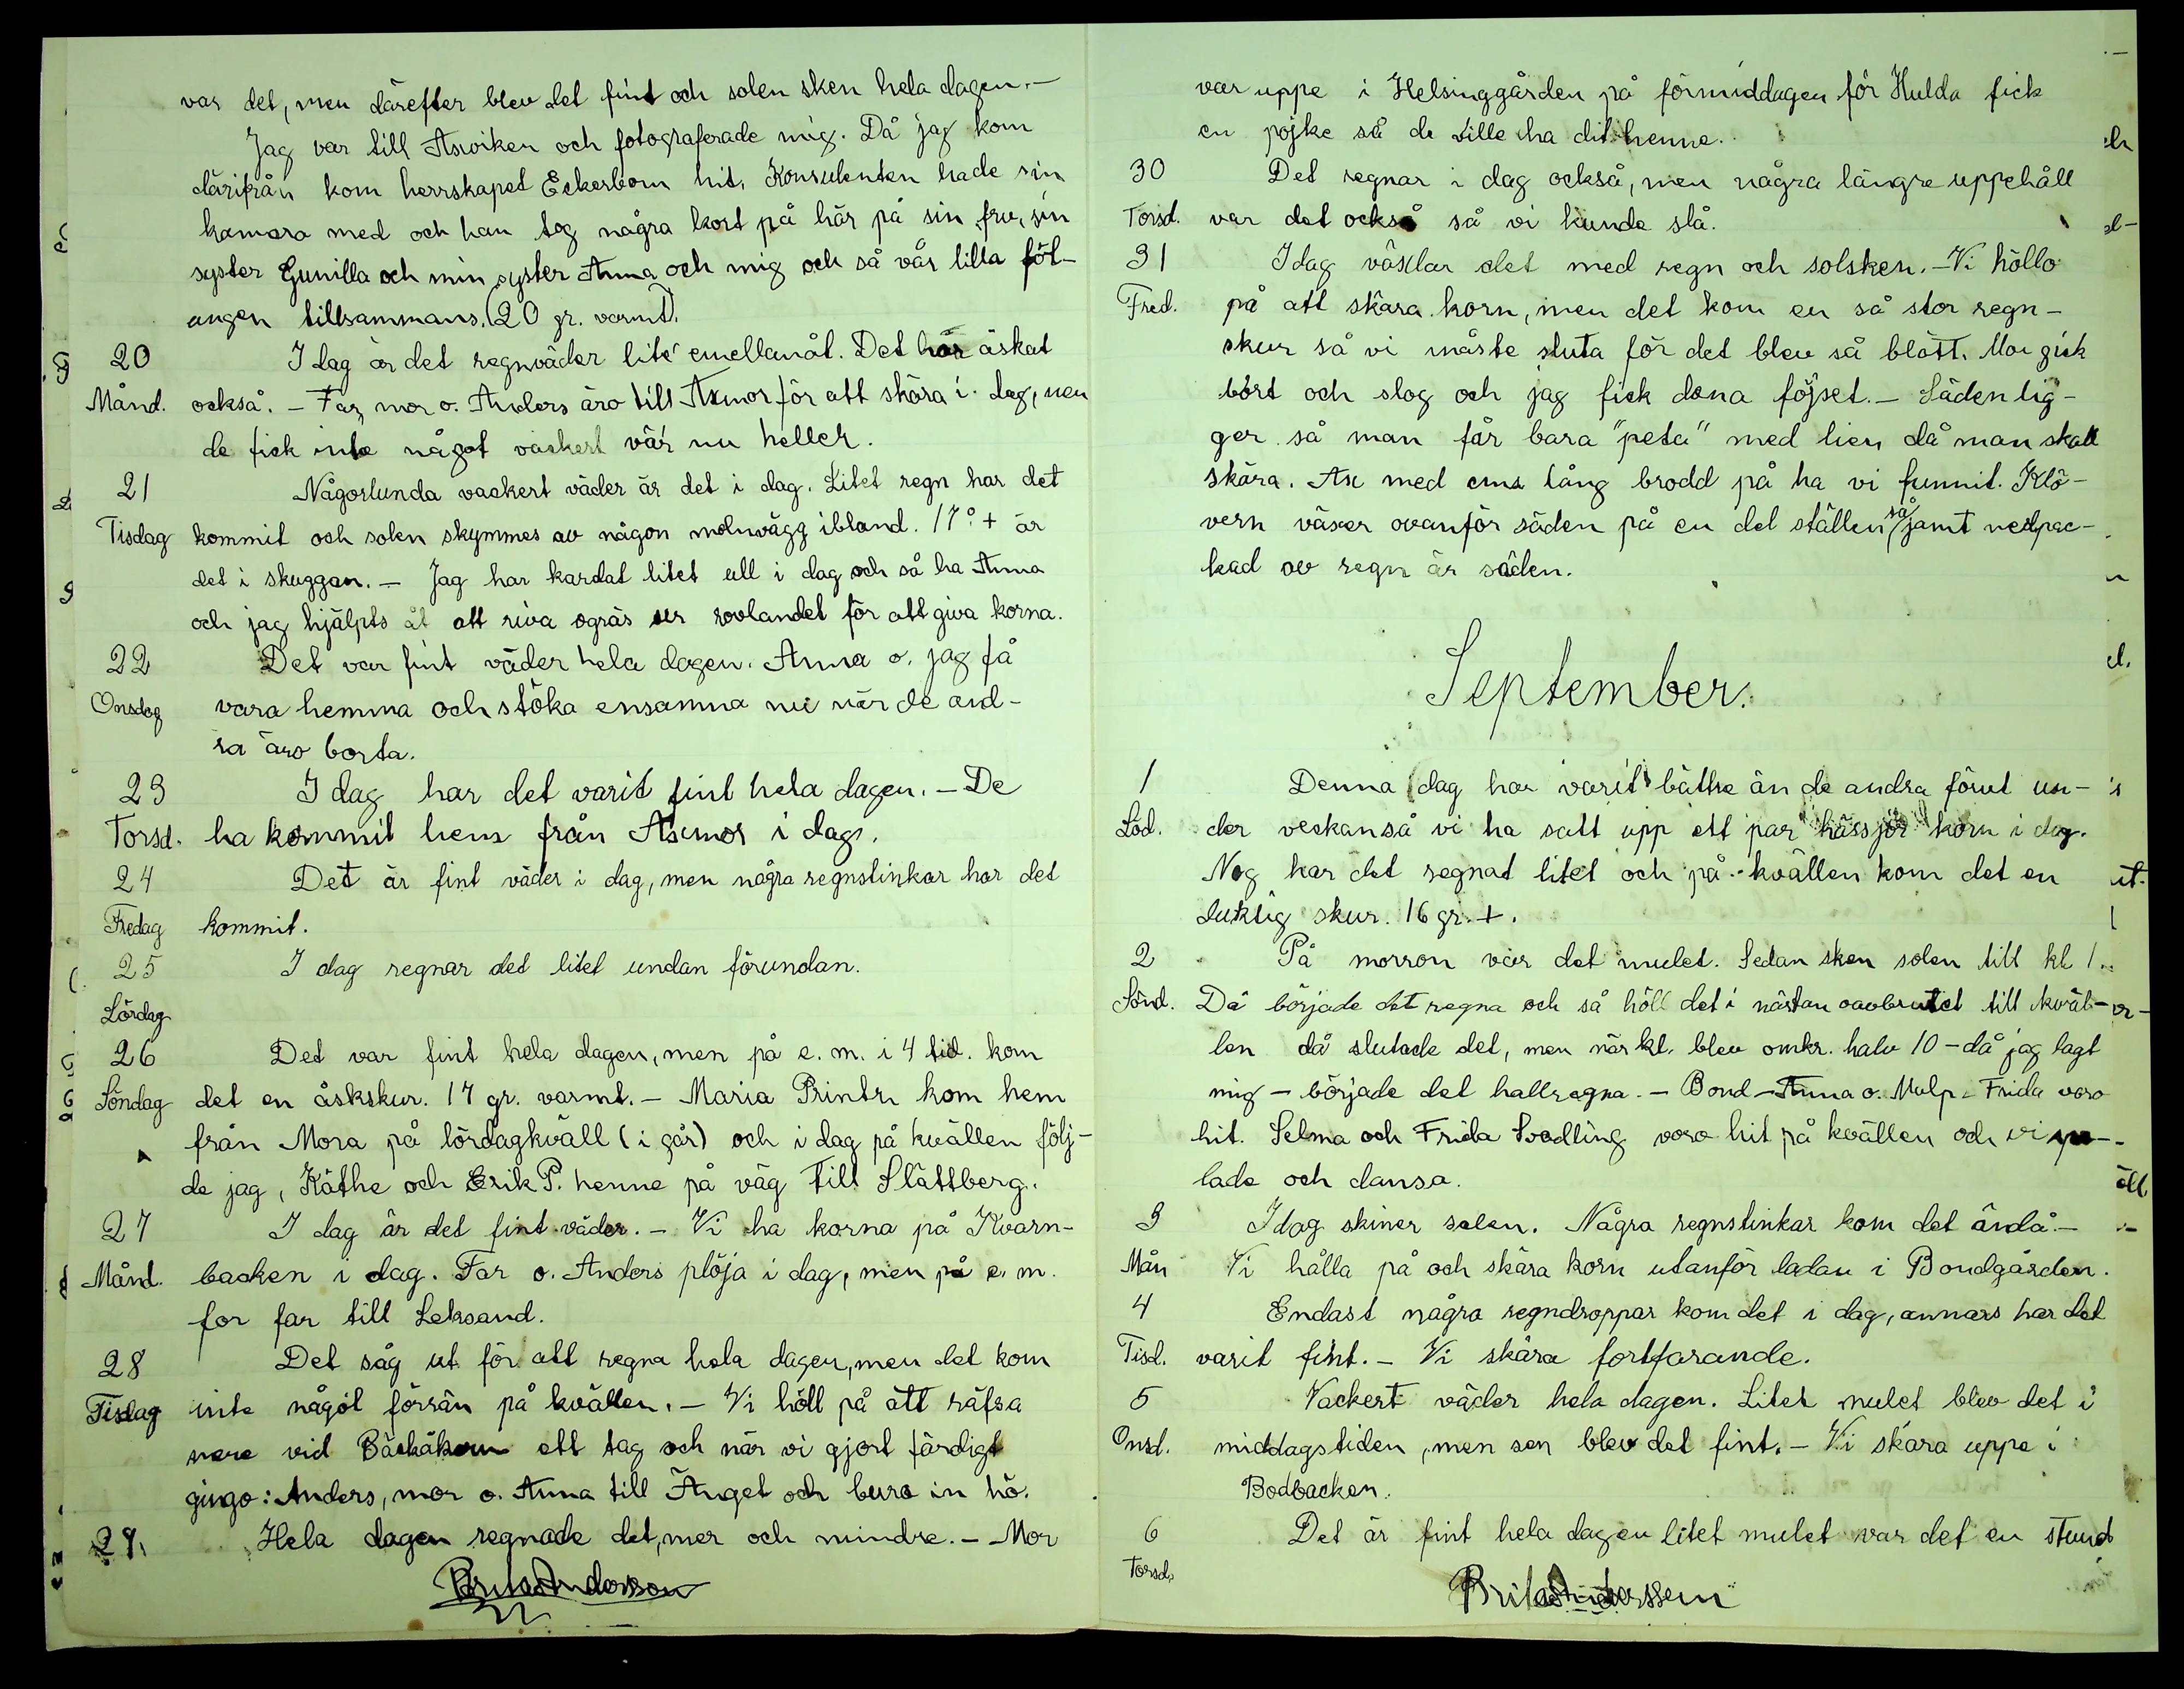 var det, men därefter blev det fint och solen sken hela dagen. -
Jag var till Asviken och fotograferade mig. Då jag kom
därifrån kom herrskapet Eckerbom hit. Konsulenten hade sin
kamara med och han tog några kort på här på sin fru, sin
syster Gunilla och min syster Anna och mig och så vår lilla föl-
ungen tillsammans. (20 gr. varmt).
20 I dag är det regnväder lite' emellanåt. Det har åskat
Månd. också. - Far, mor o. Anders äro till Axmor för att skära i dag, men
de fick inte något vackert vär nu heller.
21 Någorlunda vackert väder är det i dag. Litet regn har det
Tisdag kommit och solen skymmes av någon molnvägg ibland. 17° + är
det i skuggan. - Jag har kardat litet ull i dag och så ha Anna
och jag hjälpts åt att riva ogräs ur rovlandet för att giva korna.
22 Det var fint väder hela dagen. Anna o. jag få
Onsdag vara hemma och stöka ensamma nu när de and-
ra äro borta.
23 I dag har det varit fint hela dagen. - De
Torsd. ha kommit hem från Axmor i dag.
24 Det är fint väder i dag, men några regnstinkar har det
Fredag kommit.
25 I dag regnar det litet undan förundan.
Lördag
26 Det var fint hela dagen, men på e. m. i 4 tid. kom
Söndag det en åskskur. 17 gr. varmt. - Maria Printz kom hem
från Mora på lördagkväll (i går) och i dag på kvällen följ-
de jag, Käthe och Erik P. henne på väg till Slättberg.
27 I dag är det fint väder. - Vi ha korna på Kvarn-
Månd. backen i dag. Far o. Anders plöja i dag, men på e. m.
for far till Leksand.
28 Det såg ut för att regna hela dagen, men det kom
Tisdag inte något förrän på kvällen. - Vi höll på att räfsa
nere vid Bäckåkern ett tag och när vi gjort färdigt
gingo: Anders, mor o. Anna till Änget och buro in hö.
29. Hela dagen regnade det, mer och mindre. - Mor
Brita Andersson
var uppe i Helsinggården på förmiddagen för Hulda fick
en pojke så de ville ha dit henne.
30 Det regnar i dag också, men några längre uppehåll
Torsd. var det också så vi kunde slå.
31 Idag växlar det med regn och solsken. - Vi höllo
Fred. på att skära korn, men det kom en så stor regn-
skur så vi måste sluta för det blev så blött. Mor gick
bort och slog och jag fick dona föjset. - Säden lig-
ger så man får bara "peta" med lien då man skall
skära. Ax med cms lång brodd på ha vi funnit. Klö-
vern växer ovanför säden på en del ställen så jämt nedpac-
kad av regn är säden.
September.
1 Denna dag har varit bättre än de andra förut un-
Löd. der veckan så vi ha satt upp ett par hässjor korn i dag.
Nog har det regnat litet och på kvällen kom det en
duktig skur. 16 gr. +.
2 På morron var det mulet. Sedan sken solen till kl 1.
Sönd. Då började det regna och så höll det i nästan oavbrutet till kväl-
len då slutade det, men när kl. blev omkr. halv 10 - då jag lagt
mig - började det hällregna. - Bond-Anna o. Mulp-Frida voro
hit. Selma och Frida Svedling voro hit på kvällen och vi spe-
lade och dansa.
3 Idag skiner solen. Några regnstinkar kom det ändå. -
Mån Vi hålla på och skära korn utanför ladan i Bondgården.
4 Endast några regndroppar kom det i dag, annars har det
Tisd. varit fint. - Vi skära fortfarande.
5 Vackert väder hela dagen. Litet mulet blev det i
Onsd. middagstiden, men sen blev det fint. - Vi skära uppe i
Bodbacken.
6 Det är fint hela dagen litet mulet var det en stund
Torsd.
Brita Anderssem